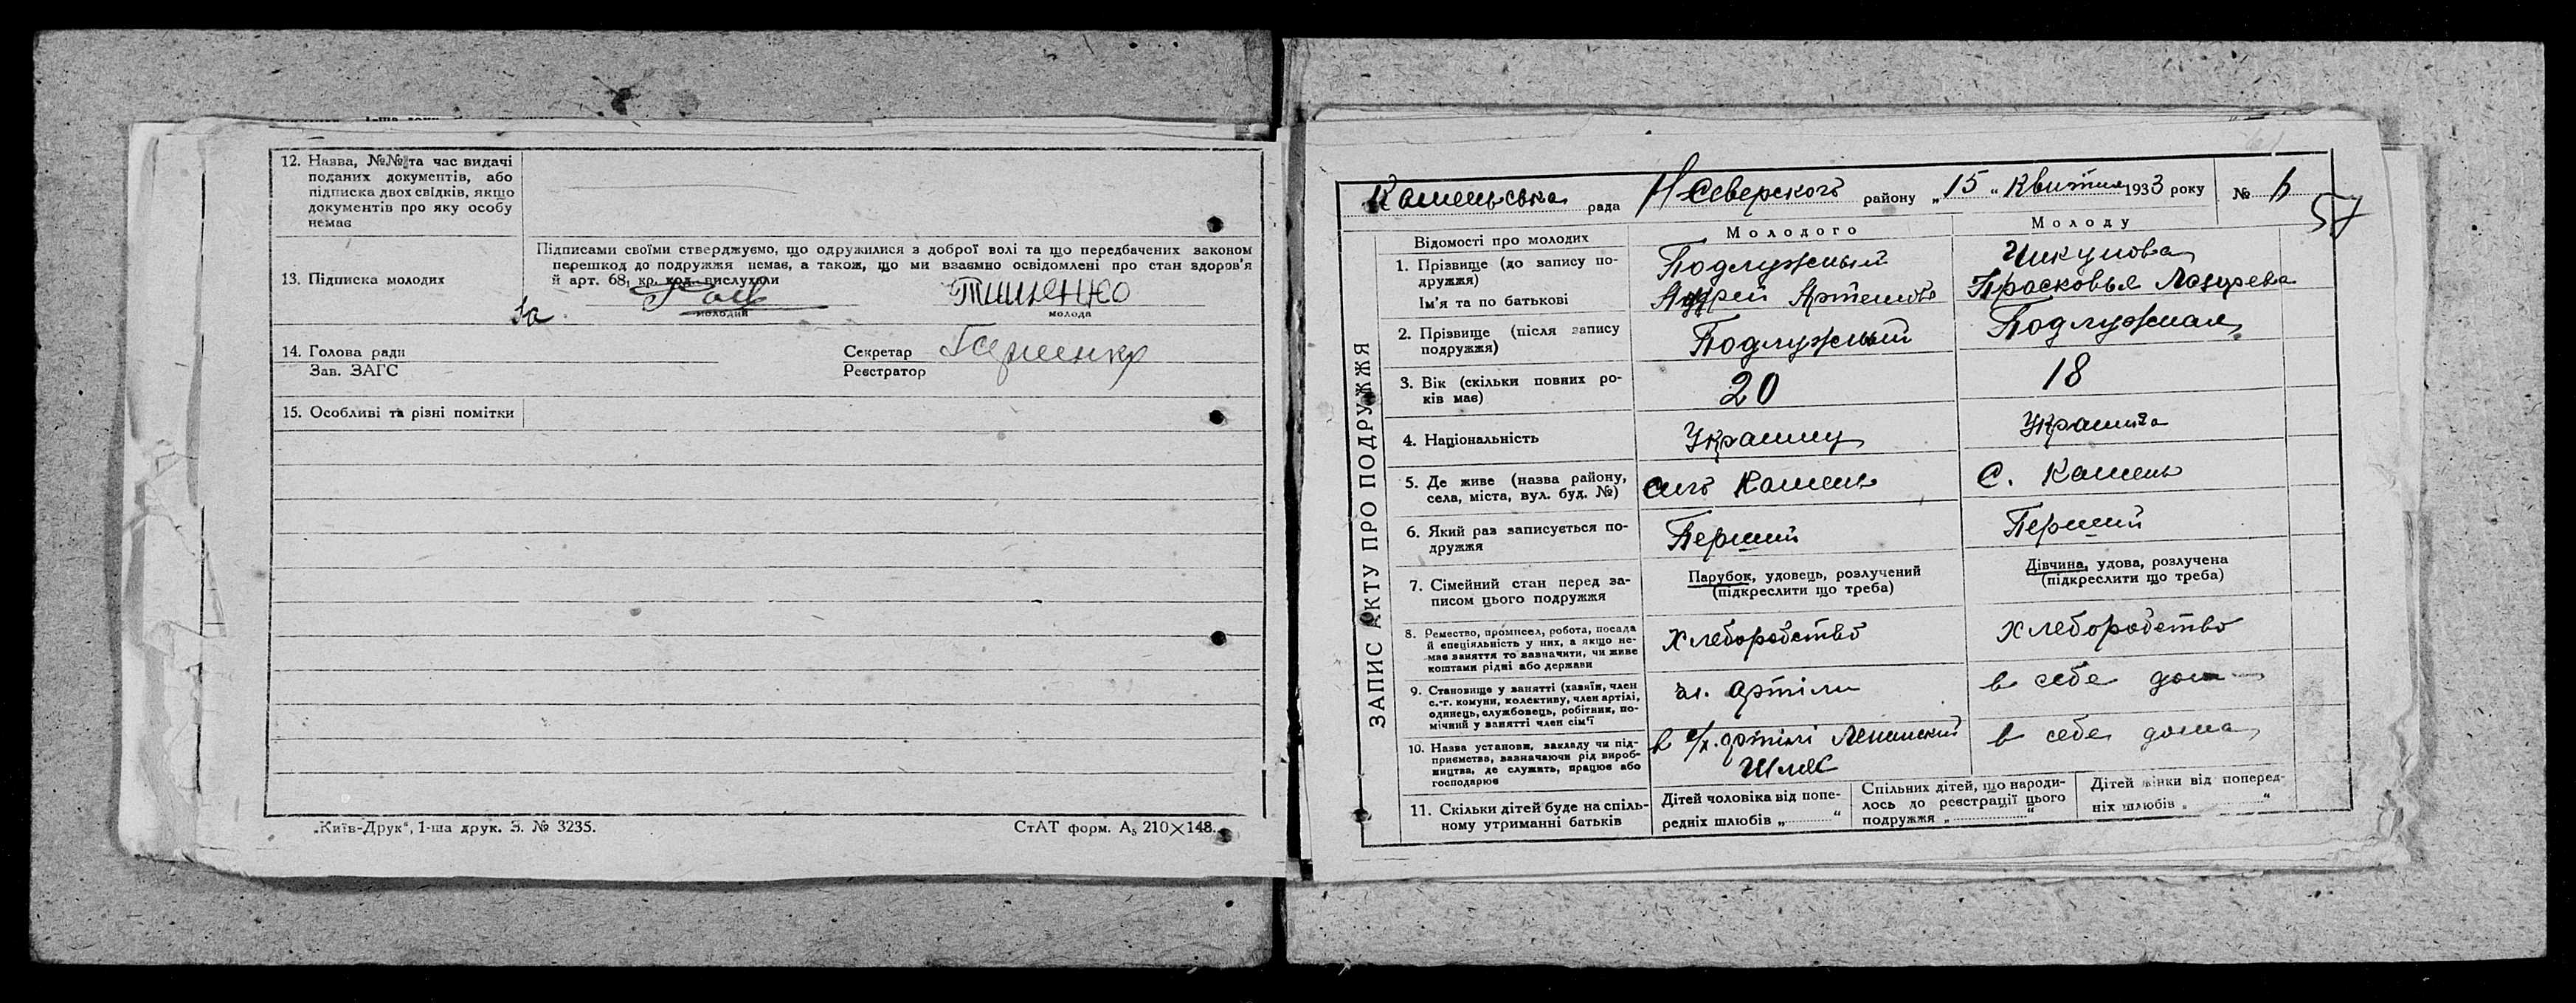 12. Назва, №№ та час видачі
поданих документів, або
підписка двох свідків, якщо
документів про яку особу
немає
13. Підписка молодих
Підписами своїми стверджуємо, що одружилися з доброї волі та що передбачених законом
перешкод до подружжя немає, а також, що ми взаємно освідомлені про стан здоров'я
й арт. 68, кр. код. вислухали
За
Тишенко
молодий
молода
14. Голова ради
Зав. ЗАГС
Секретар
Реєстратор
15. Особливі та різні помітки
„Київ-Друк“, 1-ша друк. З. № 3235.
СтАТ форм. А₅ 210×148.
ЗАПИС АКТУ ПРО ПОДРУЖЖЯ
Каменьська рада Н Северского району „15“ Квитня 1933 року №
57
Відомості про молодих
Молодого
Молоду
1. Прізвище (до запису по-
дружжя)
Ім'я та по батькові
Подлужный
Андрей Артемов
Чикунова
Прасковья Лазурева
2. Прізвище (після запису
подружжя)
Подлужный
Подлужная
3. Вік (скільки повних ро-
ків має)
20
18
4. Національність
Украинц
Украинка
5. Де живе (назва району,
села, міста, вул. буд. №)
село Камень
с. Камень
6. Який раз записується по-
дружжя
Перший
Перший
7. Сімейний стан перед за-
писом цього подружжя
Парубок, удовець, розлучений
(підкреслити що треба)
Дівчина, удова, розлучена
(підкреслити що треба)
8. Ремество, промисел, робота, посада
й спеціяльність у них, а якщо не-
має заняття то зазначити, чи живе
коштами рідні або держави
Хлеборобство
Хлеборобство
9. Становище у занятті (хазяїн, член
с.-г. комуни, колективу, член артілі,
одинець, службовець, робітник, по-
мічний у занятті член сім'ї
чл. артіли
в себе дома
10. Назва установи, закладу чи під-
приємства, зазначаючи рід вироб-
ництва, де служить, працює або
господарює
в с/х. артілі Ленинский
Шлях
в себе дома
11. Скільки дітей буде на спіль-
ному утриманні батьків
Дітей чоловіка від попе-
редніх шлюбів „ “
Спільних дітей, що народи-
лось до реєстрації цього
подружжя „ “
Дітей жінки від поперед-
ніх шлюбів „ “